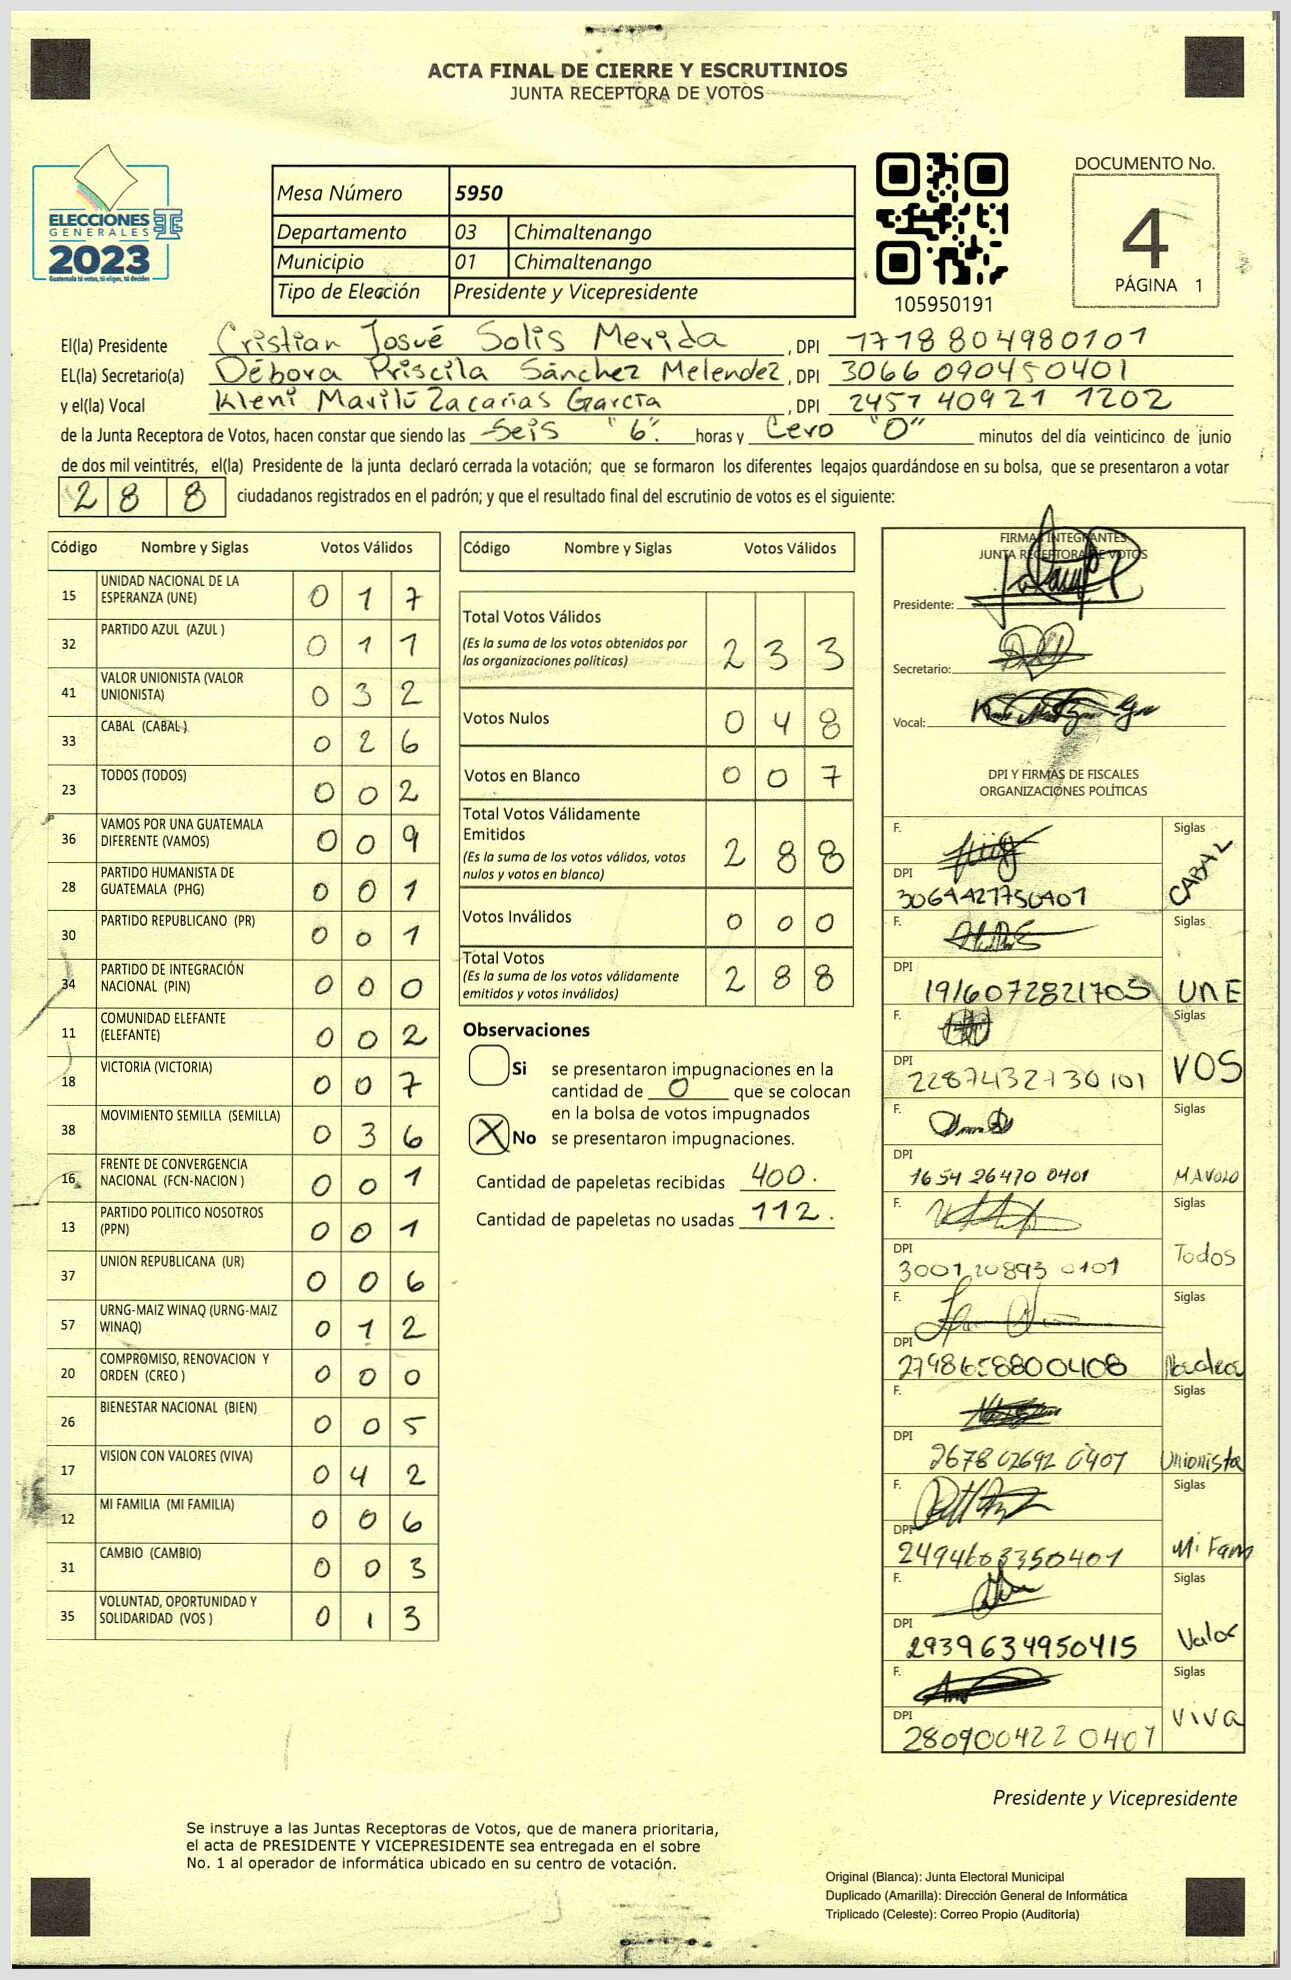 ACTA FINAL DE CIERRE Y ESCRUTINIOS
JUNTA RECEPTORA DE VOTOS
ELECCIONES
GENERALES
2023
Guatemala tú votas, tú eliges, tú decides
Mesa Número 5950
Departamento 03 Chimaltenango
Municipio 01 Chimaltenango
Tipo de Elección Presidente y Vicepresidente
105950191
DOCUMENTO No.
4
PÁGINA 1
El(la) Presidente Cristian Josué Solis Merida, DPI 1718804980101
EL(la) Secretario(a) Débora Priscila Sánchez Melendez, DPI 3066090450401
y el(la) Vocal Kleni Marilú Zacarías García, DPI 2457 40921 1202
de la Junta Receptora de Votos, hacen constar que siendo las Seis "6". horas y Cero "0" minutos del día veinticinco de junio
de dos mil veintitrés, el(la) Presidente de la junta declaró cerrada la votación; que se formaron los diferentes legajos guardándose en su bolsa, que se presentaron a votar
288 ciudadanos registrados en el padrón; y que el resultado final del escrutinio de votos es el siguiente:
Código Nombre y Siglas Votos Válidos
15 UNIDAD NACIONAL DE LA ESPERANZA (UNE) 0 1 7
32 PARTIDO AZUL (AZUL ) 0 1 1
41 VALOR UNIONISTA (VALOR UNIONISTA) 0 3 2
33 CABAL (CABAL ) 0 2 6
23 TODOS (TODOS) 0 0 2
36 VAMOS POR UNA GUATEMALA DIFERENTE (VAMOS) 0 0 9
28 PARTIDO HUMANISTA DE GUATEMALA (PHG) 0 0 1
30 PARTIDO REPUBLICANO (PR) 0 0 1
34 PARTIDO DE INTEGRACIÓN NACIONAL (PIN) 0 0 0
11 COMUNIDAD ELEFANTE (ELEFANTE) 0 0 2
18 VICTORIA (VICTORIA) 0 0 7
38 MOVIMIENTO SEMILLA (SEMILLA) 0 3 6
16 FRENTE DE CONVERGENCIA NACIONAL (FCN-NACION ) 0 0 1
13 PARTIDO POLITICO NOSOTROS (PPN) 0 0 1
37 UNION REPUBLICANA (UR) 0 0 6
57 URNG-MAIZ WINAQ (URNG-MAIZ WINAQ) 0 1 2
20 COMPROMISO, RENOVACION Y ORDEN (CREO ) 0 0 0
26 BIENESTAR NACIONAL (BIEN) 0 0 5
17 VISION CON VALORES (VIVA) 0 4 2
12 MI FAMILIA (MI FAMILIA) 0 0 6
31 CAMBIO (CAMBIO) 0 0 3
35 VOLUNTAD, OPORTUNIDAD Y SOLIDARIDAD (VOS ) 0 1 3
Código Nombre y Siglas Votos Válidos
Total Votos Válidos
(Es la suma de los votos obtenidos por
las organizaciones políticas) 2 3 3
Votos Nulos 0 4 8
Votos en Blanco 0 0 7
Total Votos Válidamente
Emitidos
(Es la suma de los votos válidos, votos
nulos y votos en blanco) 2 8 8
Votos Inválidos 0 0 0
Total Votos
(Es la suma de los votos válidamente
emitidos y votos inválidos) 2 8 8
Observaciones
Si se presentaron impugnaciones en la
cantidad de 0 que se colocan
en la bolsa de votos impugnados
X No se presentaron impugnaciones.
Cantidad de papeletas recibidas 400.
Cantidad de papeletas no usadas 112.
FIRMAS INTEGRANTES
JUNTA RECEPTORA DE VOTOS
Presidente:
Secretario:
Vocal:
DPI Y FIRMAS DE FISCALES
ORGANIZACIONES POLÍTICAS
F. Siglas
DPI CABAL
3064427750401
F. Siglas
DPI
1916072821703 UNE
F. Siglas
DPI
2287432730101 VOS
F. Siglas
DPI
1654 26470 0401
F. Siglas
DPI Todos
3001 20893 0101
F. Siglas
DPI
2798658800408
F. Siglas
DPI
2678 02692 0401 Unionista
F. Siglas
DPI
2494603350401 Mi Fam
F. Siglas
DPI
2939634950415 Valor
F. Siglas
DPI
2809004220401 Viva
Presidente y Vicepresidente
Se instruye a las Juntas Receptoras de Votos, que de manera prioritaria,
el acta de PRESIDENTE Y VICEPRESIDENTE sea entregada en el sobre
No. 1 al operador de informática ubicado en su centro de votación.
Original (Blanca): Junta Electoral Municipal
Duplicado (Amarilla): Dirección General de Informática
Triplicado (Celeste): Correo Propio (Auditoría)